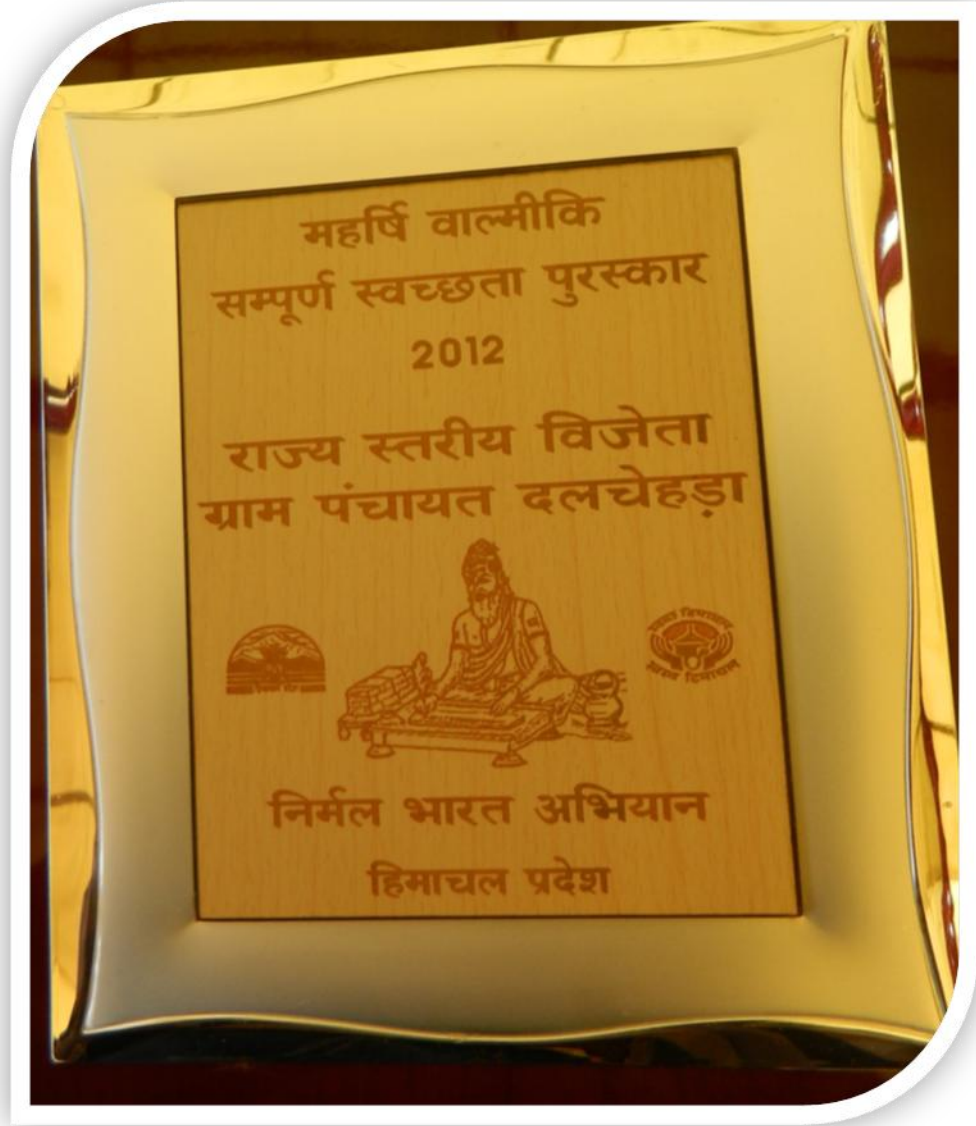 महर्षि वाल्मीकि
सम्पूर्ण स्वच्छता पुरस्कार
2012
राज्य स्तरीय विजेता
ग्राम पंचायत दलचेहड़ा
स्वच्छ हिमाचल
स्वस्थ हिमाचल
निर्मल भारत अभियान
हिमाचल प्रदेश